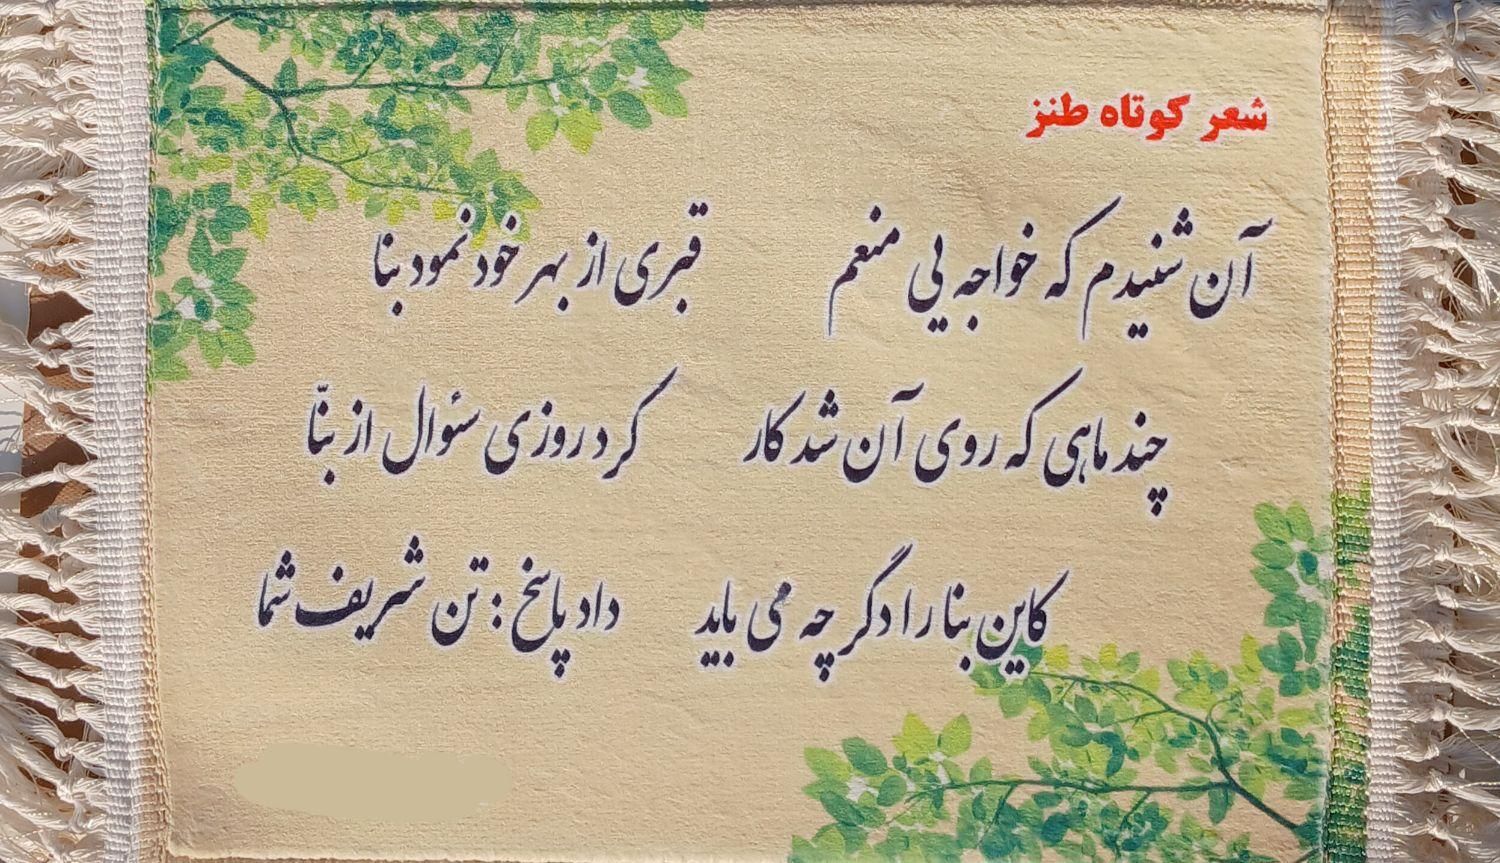 شعر کوتاه طنز
آن شنیدم که خواجه یی منعم قبری از بهر خود نمود بنا
چند ماهی که روی آن شد کار کرد روزی سئوال از بنّا
کاین بنا را دگر چه می باید داد پاسخ : تن شریف شما